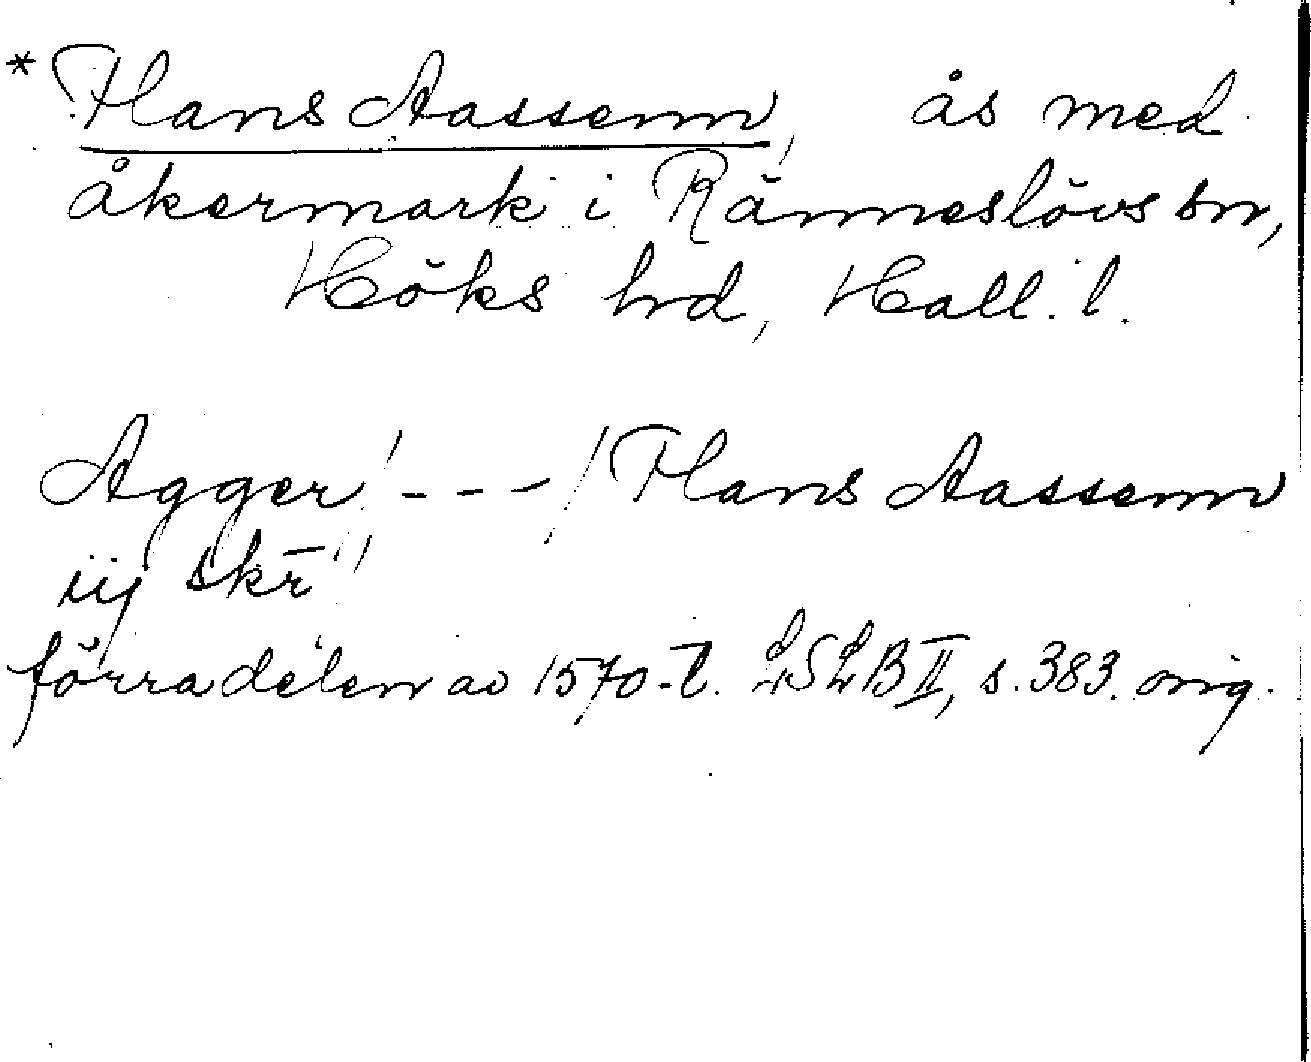 * Hans Aassenn, ås med
åkermark i Ränneslövs sn,
Höks hrd, Hall. l.
Agger /---/ Hans Aassenn
iij skr̄
förra delen av 1570-t. LSLB II, s. 383. orig.